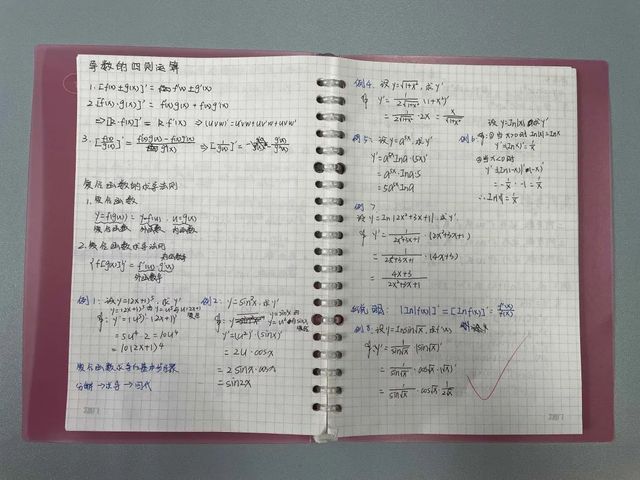 导数的四则运算
1. [f(x)±g(x)]' = f'(x)±g'(x)
2. [f(x)·g(x)]' = f'(x)g(x)+f(x)g'(x)
⇒[k·f(x)]' = k·f'(x) ⇒(uvw)'=u'vw+uv'w+uvw'
3. [f(x)/g(x)]' = f'(x)g(x)-f(x)g'(x)/g²(x) ⇒[1/g(x)]' = -g'(x)/g²(x)
复合函数的求导法则
1. 复合函数
y=f(g(x)) y=f(u) u=g(x)
复合函数 外函数 内函数
2. 复合函数求导法则
内函数导
{f[g(x)]}' = f'(u)·g'(x)
外函数导
例1: 设y=(2x+1)⁵, 求y'
y=(2x+1)⁵由y=u⁵与u=2x+1复合
y'=(u⁵)'·(2x+1)'
=5u⁴·2=10u⁴
=10(2x+1)⁴
复合函数求导的基本步骤
分解→求导→回代
例2: y=sin²x, 求y'
y'=(u²)'·(sinx)'
=2u·cosx
=2sinx·cosx
=sin2x
例4. 设y=√1+x², 求y'
y'=1/2√1+x²·(1+x²)'
=1/2√1+x²·2x=x/√1+x²
例5: 设y=a⁵ˣ, 求y'
y'=a⁵ˣlna·(5x)'
=a⁵ˣ·lna·5
=5a⁵ˣlna
例6.
设y=ln|x|, 求y'
①当x>0时 ln|x|=lnx
y'=(lnx)'=1/x
②当x<0时
y'=[ln(-x)]'(-x)'
=-1/x·-1=1/x
∴ln|x|'=1/x
例7
设y=ln|2x²+3x+1|, 求y'
y'=1/2x²+3x+1·(2x²+3x+1)'
=1/2x²+3x+1·(4x+3)
=4x+3/2x²+3x+1
[ln|f(x)|]'=[lnf(x)]'=f'(x)/f(x)
例8: 设y=lnsin√x, 求
y'=1/sin√x·(sin√x)'
=1/sin√x·cos√x·(√x)'
=1/sin√x·cos√x·1/2√x